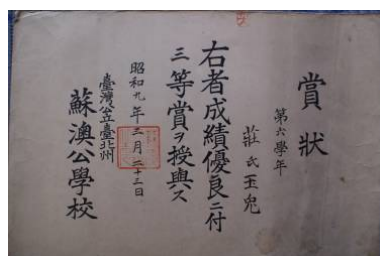 賞狀
第六學年
莊氏玉兔
右者成績優良ニ付
三等賞ヲ授與ス
昭和九年三月二十三日
臺灣公立臺北州
蘇澳公學校